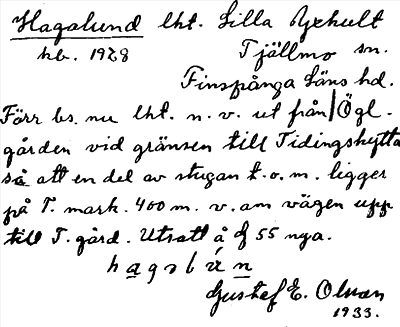 Hagalund lht. Lilla Yxhult
hb. 1928 Tjällmo sn.
Finspånga Läns hd.
Förr bs. nu lht. n. v. ut från Ögl.
gården vid gränsen till Tidingshytta
så att en del av stugan t. o. m. ligger
på T. mark. 400 m. v. om vägen upp
till T. gård. Utsatt å 55 nya.
Gustaf E. Olsson
1933.